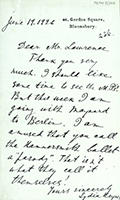 46, Gordon Square,
Bloomsbury.
June 19, 1922
Dear Mr Lawrence
Thank you very
much. I should like
some time to see the MSS.
But this week I am
going with Maynard
to Berlin. I am
amused that you call
the Hammersmith ballet
a "parody". That isn't
what they call it
themselves!
Yours sincerely
Lydia Keynes